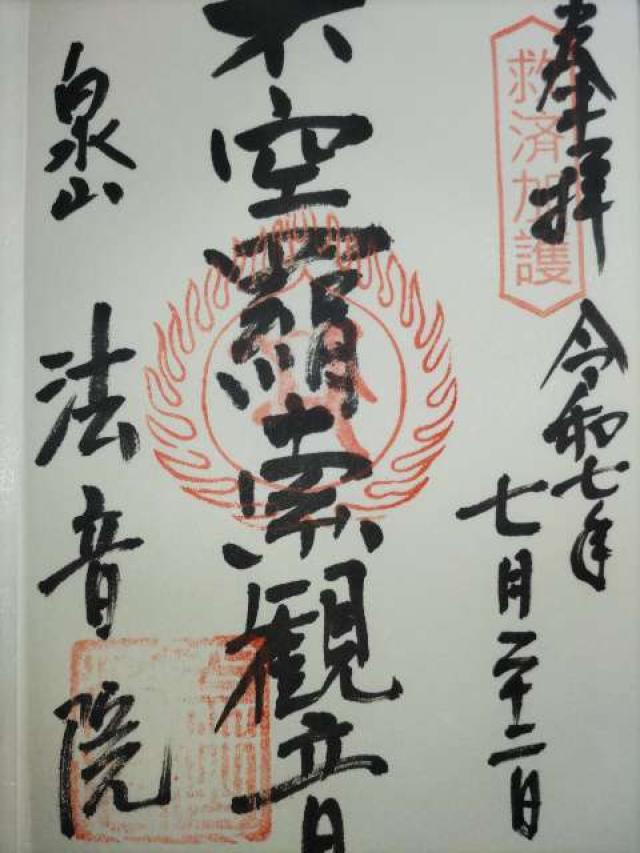 奉拝
救済加護
令和七年
七月二十二日
不空羂索観音
泉山
法音院